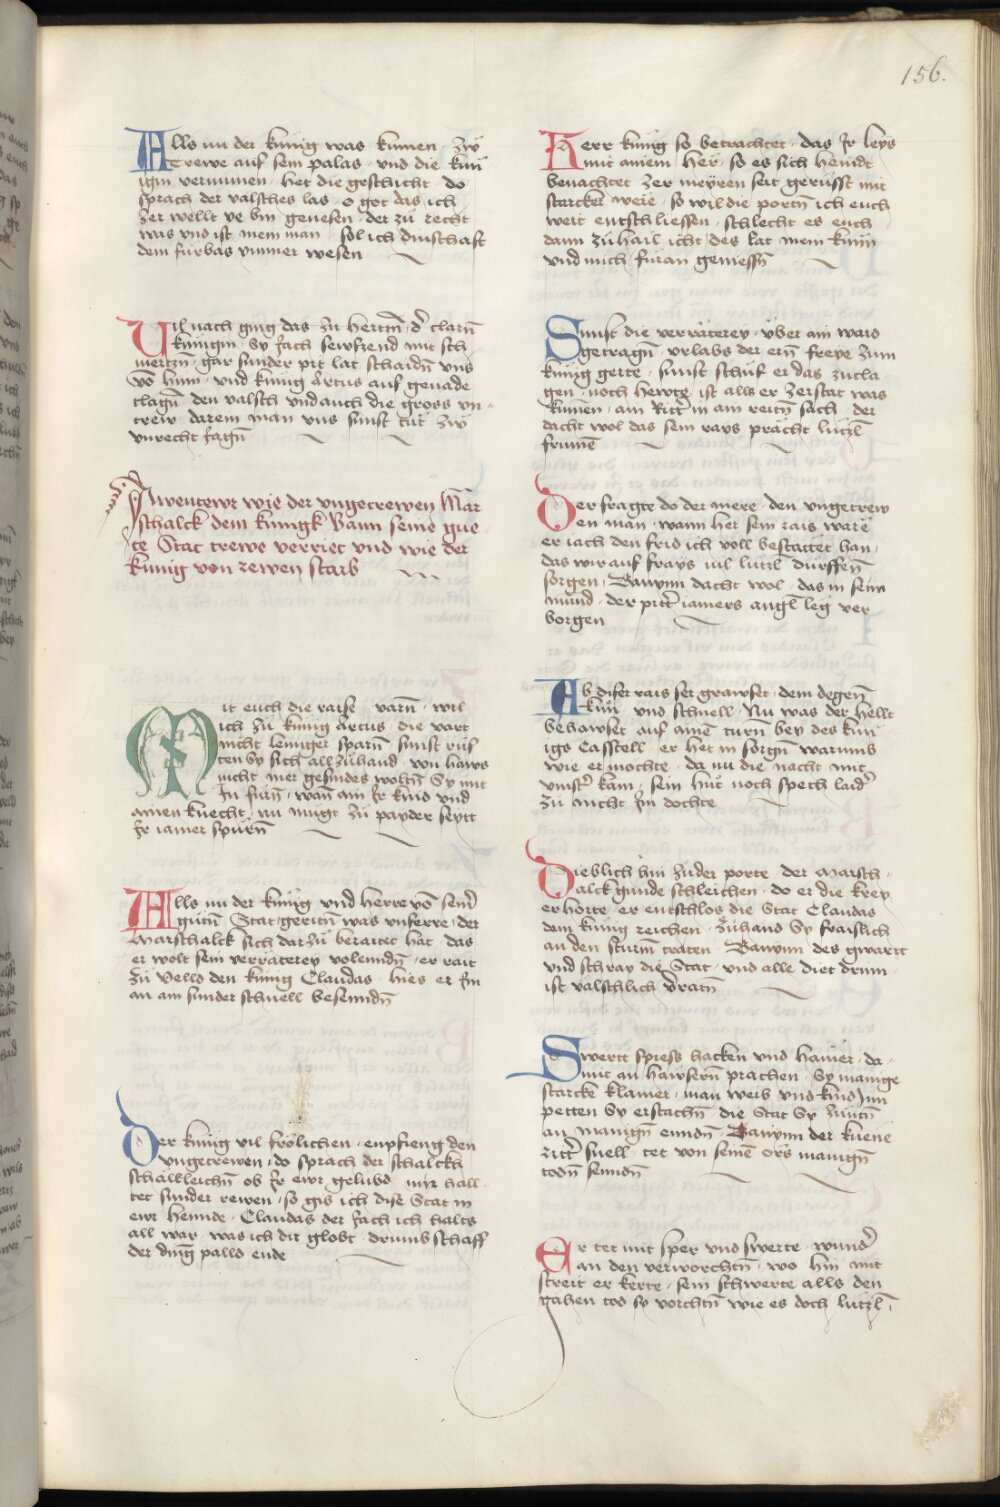 156.
Alls nu der künig was kumen · zw
Trewe auf sein palas · vnd die kün
igin vernumen · het die geschicht · do
sprach der valsches las · o got das ich
Jer wellt ye bin genesen · der zu recht
was vnd ist mein man · sol ich dinschaft
dem fürbas ymmer wesen
Vil nach ging das zu herczn̄ · d' clarn̄
künigin · Sy sach sewfzend mit sch
merczn̄ · gar sunder pit lat schaidn̄ vns
võ hinn · vnd künig Artus auf genade
clagn̄ den valsch vnd auch die gross vn-
trew · darein man vns sunst tüt zw
vnrecht sagn̄
Awentewr wie der vngetrewen Mar
schalck dem kunigk Bann seine gue-
te Stat trewe verriet vnd wie der
künig von rewen starb
Mit euch die raise varn̄ · wil
ich zu künig Artus die vart
nicht lenniger sparn̄ sunst rüs
ten Sy sich all zuhand · von haws
nicht mer gesindes woltn̄ Sy mit
In fürn̄ · wan̄ ain Ir kind vnd
ainen knecht · nu mügt zu payder seytt
Ir iamer spürn̄
Alls nu der künig vnd herre võ seind'
gütn̄ Stat geritn̄ was vnferre · der
Marschalck sich dar zu beraitet hat · das
er wolt sein verräterey volenndn̄ · er rait
zu velld den künig Claudas · hies er Im
an ain sunder schnell besenndn̄
Der künig vil frölichen · enpfieng den
vngetrewen · do sprach der schalckh
schallleichn̄ ob Ir ewr gelubd mir hall
tet sunder rewen · so gib ich dise Stat in
ewr hennde · Claudas der sach ich halts
all war was ich dir globt · drumb schaff
der ding palld ende
Herr künig so betrachtet · das Ir leys
mit ainem her · so es sich heindt
benachtet Jer meyren seit gerüsst mit
starcker were · so wil die portn̄ ich euch
weit entschliessen · schlecht es euch
dann zu hail icht · des lat mein künn
vnd mich füran geniessn̄
Sunst die verräterey · vber ain ward
getragn̄ · vrlabs der ern̄ freye zum
künig gerte · sunst schüf er das zu cla-
gen · noch hewte · ist alls er Jer stat was
kumen · ain Ritt' in ain reitn̄ sach · der
dacht wol das sein rays prächt lützl
frumē
Der fragte do der mere · den vngetrew
en man · wann her sein rais ware
er iach den frid ich voll bestättet han ·
das wir auf frays vil lützl dürffen̄
sorgen · Banynn dacht wol · das in sein
mund · der pitt' iamers angl leg ver
borgen
Ab diser rais ser grawset · dem degen̄
kün vnd schnell · Nu was der hellt
behawset auf ainē turn̄ bey des kün
igs Casstell er het in sorgn̄ warumb
wie er mochte · da nu die nacht mit
vinst' kam · sein hüt noch spech laid'
zu nicht Im dochte
Dieblich hin zuder porte · der Marsch-
alck gunde schleichen · do er die krey
erhorte · er entschlos die Stat Claudas
dem künig reichen · zuhand Sy fraislich
an den sturm traten · Banynn des gwartt
vnd schray die Stat · vnd alle diet drinn
ist valschlich v'ratn̄
Swertt spiess hacken vnd hamer · da-
mit an hawsern̄ prachen · Sy manige
starcke klamer · man weib vnd kind Jnn
petten Sy erstachn̄ die Stat Sy zuntn̄
an manign̄ enndn̄ · Banynn der kuene
ritt' snell · tet von seinē ors manign̄
todn̄ senndn̄
Er tet mit sper vnd swerte · wund'
an den verworchtn̄ · wo hin mit
streit er kerte · sein schwerte alls den
gahen tod sy vorchtn̄ wie es doch lützl